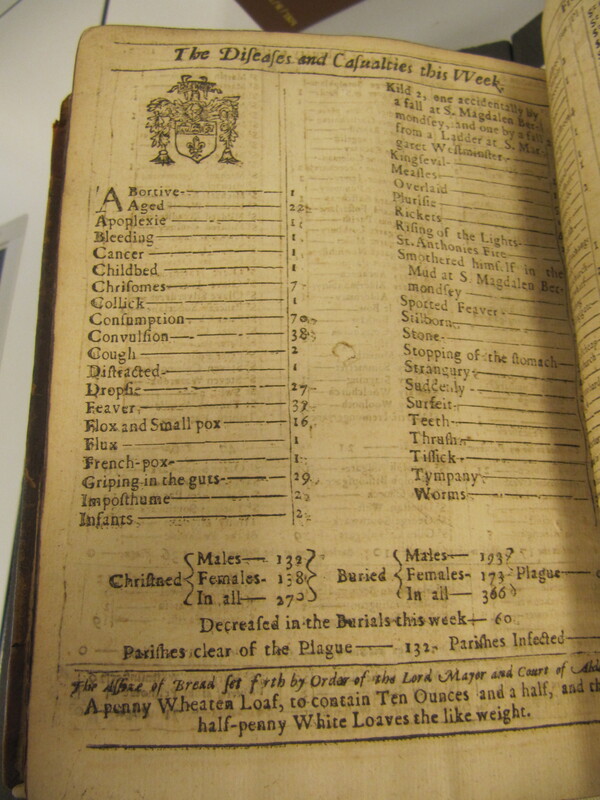 The Diſeaſes and Caſualties this Week.
ABortive 1
Aged 22
Apoplexie 1
Bleeding 1
Cancer 1
Childbed 1
Chriſomes 7
Collick 1
Conſumption 70
Convulſion 38
Cough 2
Diſtracted 1
Dropſie 27
Feaver 37
Flox and Small pox 16
Flux 1
French-pox 1
Griping in the guts 29
Impoſthume 2
Infants 2
Kild 2, one accidentally by
a fall at S. Magdalen Ber-
mondſey, and one by a fall
from a Ladder at S. Mar-
garet Weſtminſter
Kingſevil
Meaſles
Overlaid
Pluriſie
Rickets
Riſing of the Lights
St. Anthonies Fire
Smothered himſelf in the
Mud at S. Magdalen Ber-
mondſey
Spotted Feaver
Stilborn
Stone
Stopping of the ſtomach
Strangury
Suddenly
Surfeit
Teeth
Thruſh
Tiſſick
Tympany
Worms
Chriſtned
Males 132
Females 138
In all 270
Buried
Males 193
Females 173
In all 366
Plague
Decreaſed in the Burials this week 60
Pariſhes clear of the Plague 132 Pariſhes Infected
The Aſſize of Bread ſet forth by Order of the Lord Mayor and Court of
A penny Wheaten Loaf, to contain Ten Ounces and a half, and
half-penny White Loaves the like weight.